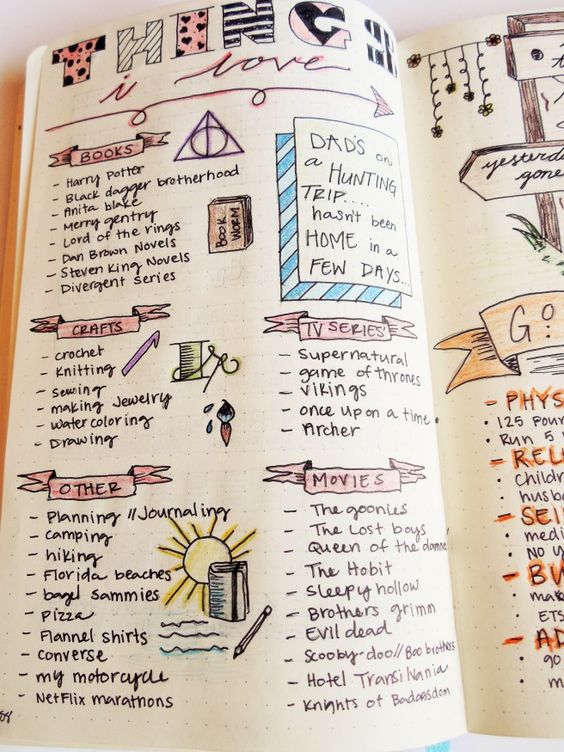 THINGS
i love
BOOKS
- Harry Potter
- Black dagger brotherhood
- Anita blake
- Merry gentry
- Lord of the rings
- Dan Brown Novels
- Steven King Novels
- Divergent Series
BOOK
WORM
DAD'S on
a HUNTING
TRIP....
hasn't been
HOME in a
FEW DAYS...
CRAFTS
- crochet
- knitting
- sewing
- making jewelry
- watercoloring
- Drawing
TV SERIES'
- Supernatural
- game of thrones
- Vikings
- once upon a time
- Archer
OTHER
- Planning // Journaling
- camping
- hiking
- Florida beaches
- bagel sammies
- Pizza
- Flannel shirts
- converse
- my motorcycle
- NetFlix marathons
MOVIES
- The goonies
- The Lost boys
- Queen of the damne
- The Hobit
- Sleepy hollow
- Brothers grimm
- Evil dead
- Scooby-doo // Boo brothers
- Hotel Transilvania
- Knights of Badassdom
yesterda
gone
GO
- PHYS
• 125 Poun
• Run 5
- REL
• Childr
• husba
- SEL
• medi
• NO
- BU
• mak
ETS
- AD
• 90
• m